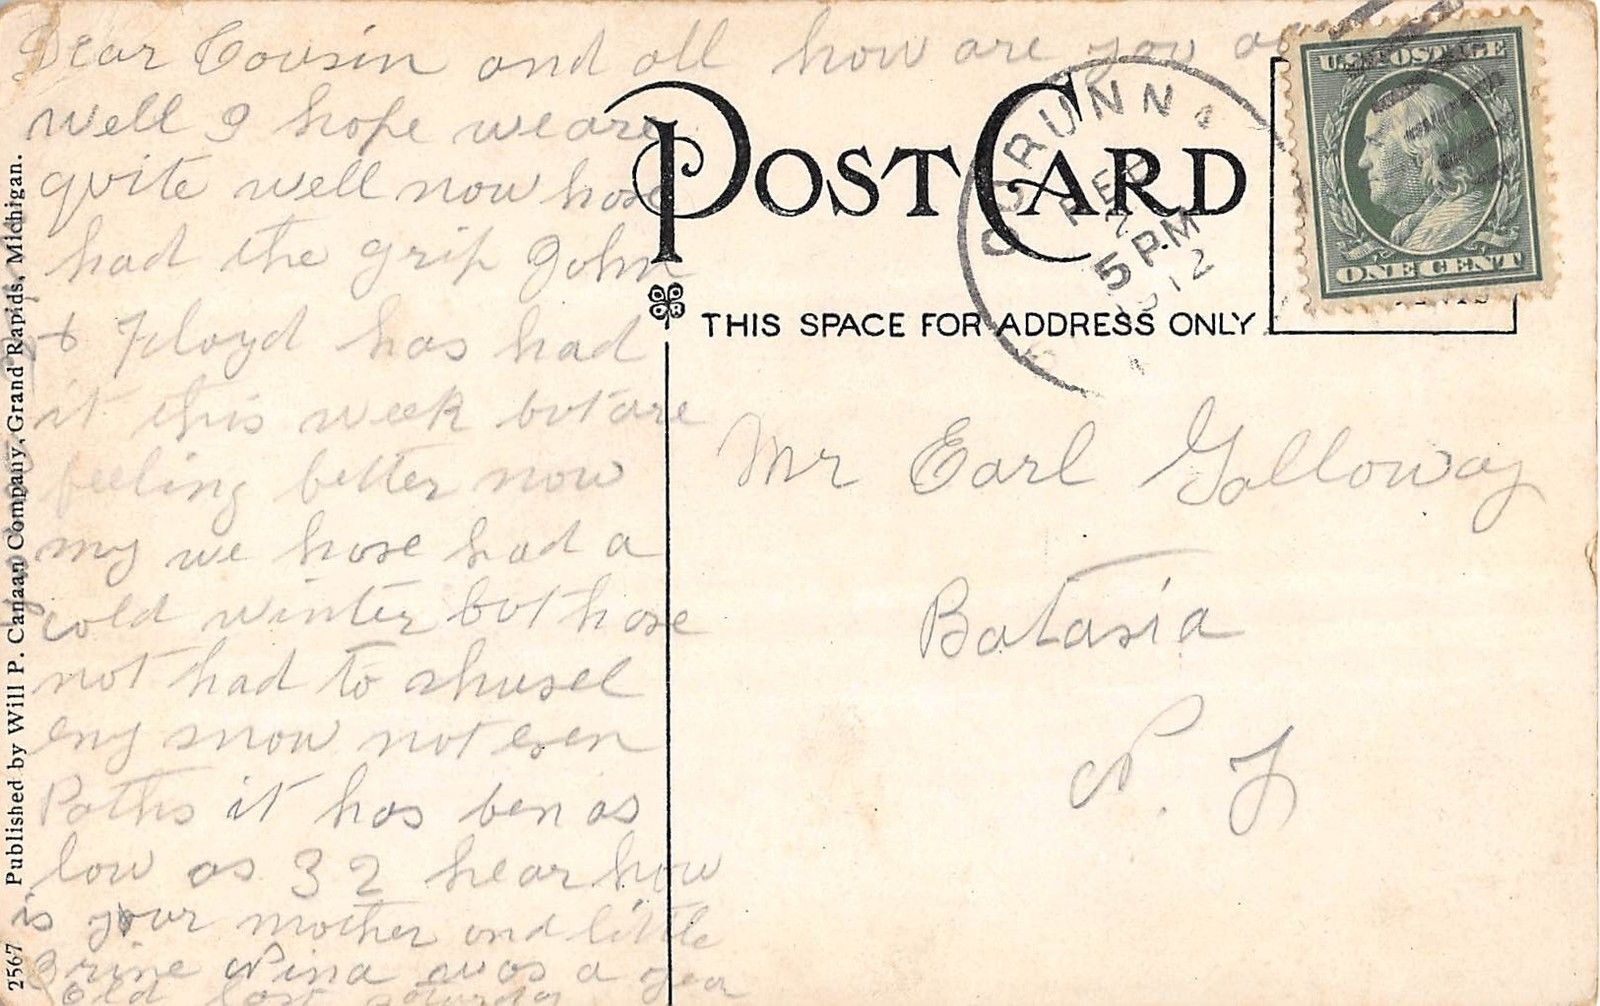 Dear Cousin and all how are you
well I hope we are
quite well now hose
had the grip John
& Floyd has had
it this week but are
feeling better now
my we hose had a
cold winter but hose
not had to shusel
eny snow not even
Paths it has ben as
low as 32 hear how
is your mother and little
Nina was a year
Old last saturday
POST CARD
THIS SPACE FOR ADDRESS ONLY
CORUNNA
FEB
5 PM
1912
U.S. POSTAGE
ONE CENT
Mr Earl Golloway
Batavia
N. Y
2567 Published by Will P. Canaan Company, Grand Rapids, Michigan.